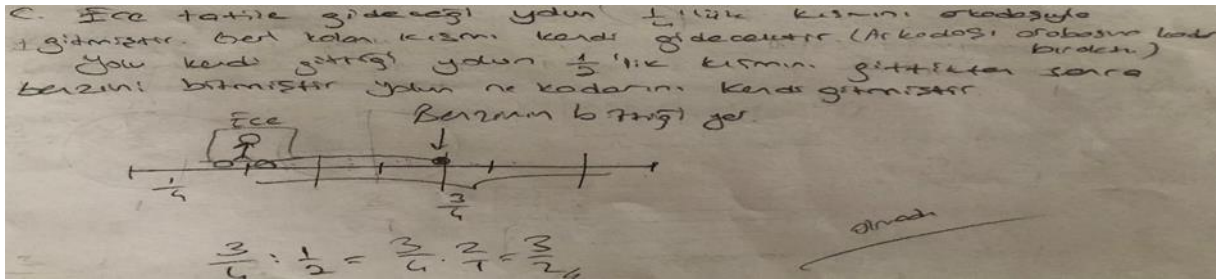 C. Ece tatile gideceği yolun 1/4'lük kısmını arkadaşıyla
gitmiştir. Geri kalan kısmı kendi gidecektir (Arkadaşı arabasına kadar
bıraktı)
Yolu kendi gittiği yolun 1/2'lik kısmını gittikten sonra
benzini bitmiştir yolun ne kadarını kendi gitmiştir
Ece Benzinin bittiği yer.
1/4 3/4
3/4 : 1/2 = 3/4 . 2/1 = 3/2